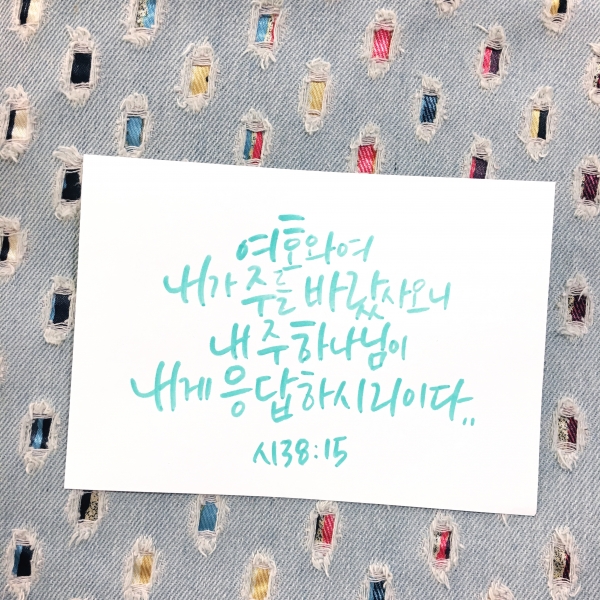 여호와여
내가 주를 바랐사오니
내 주 하나님이
내게 응답하시리이다,,
시38:15